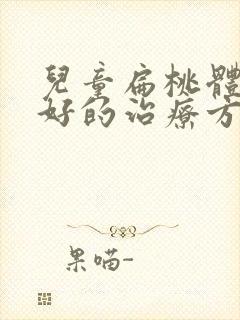 兒童扁桃體
好的治療方
果喵-